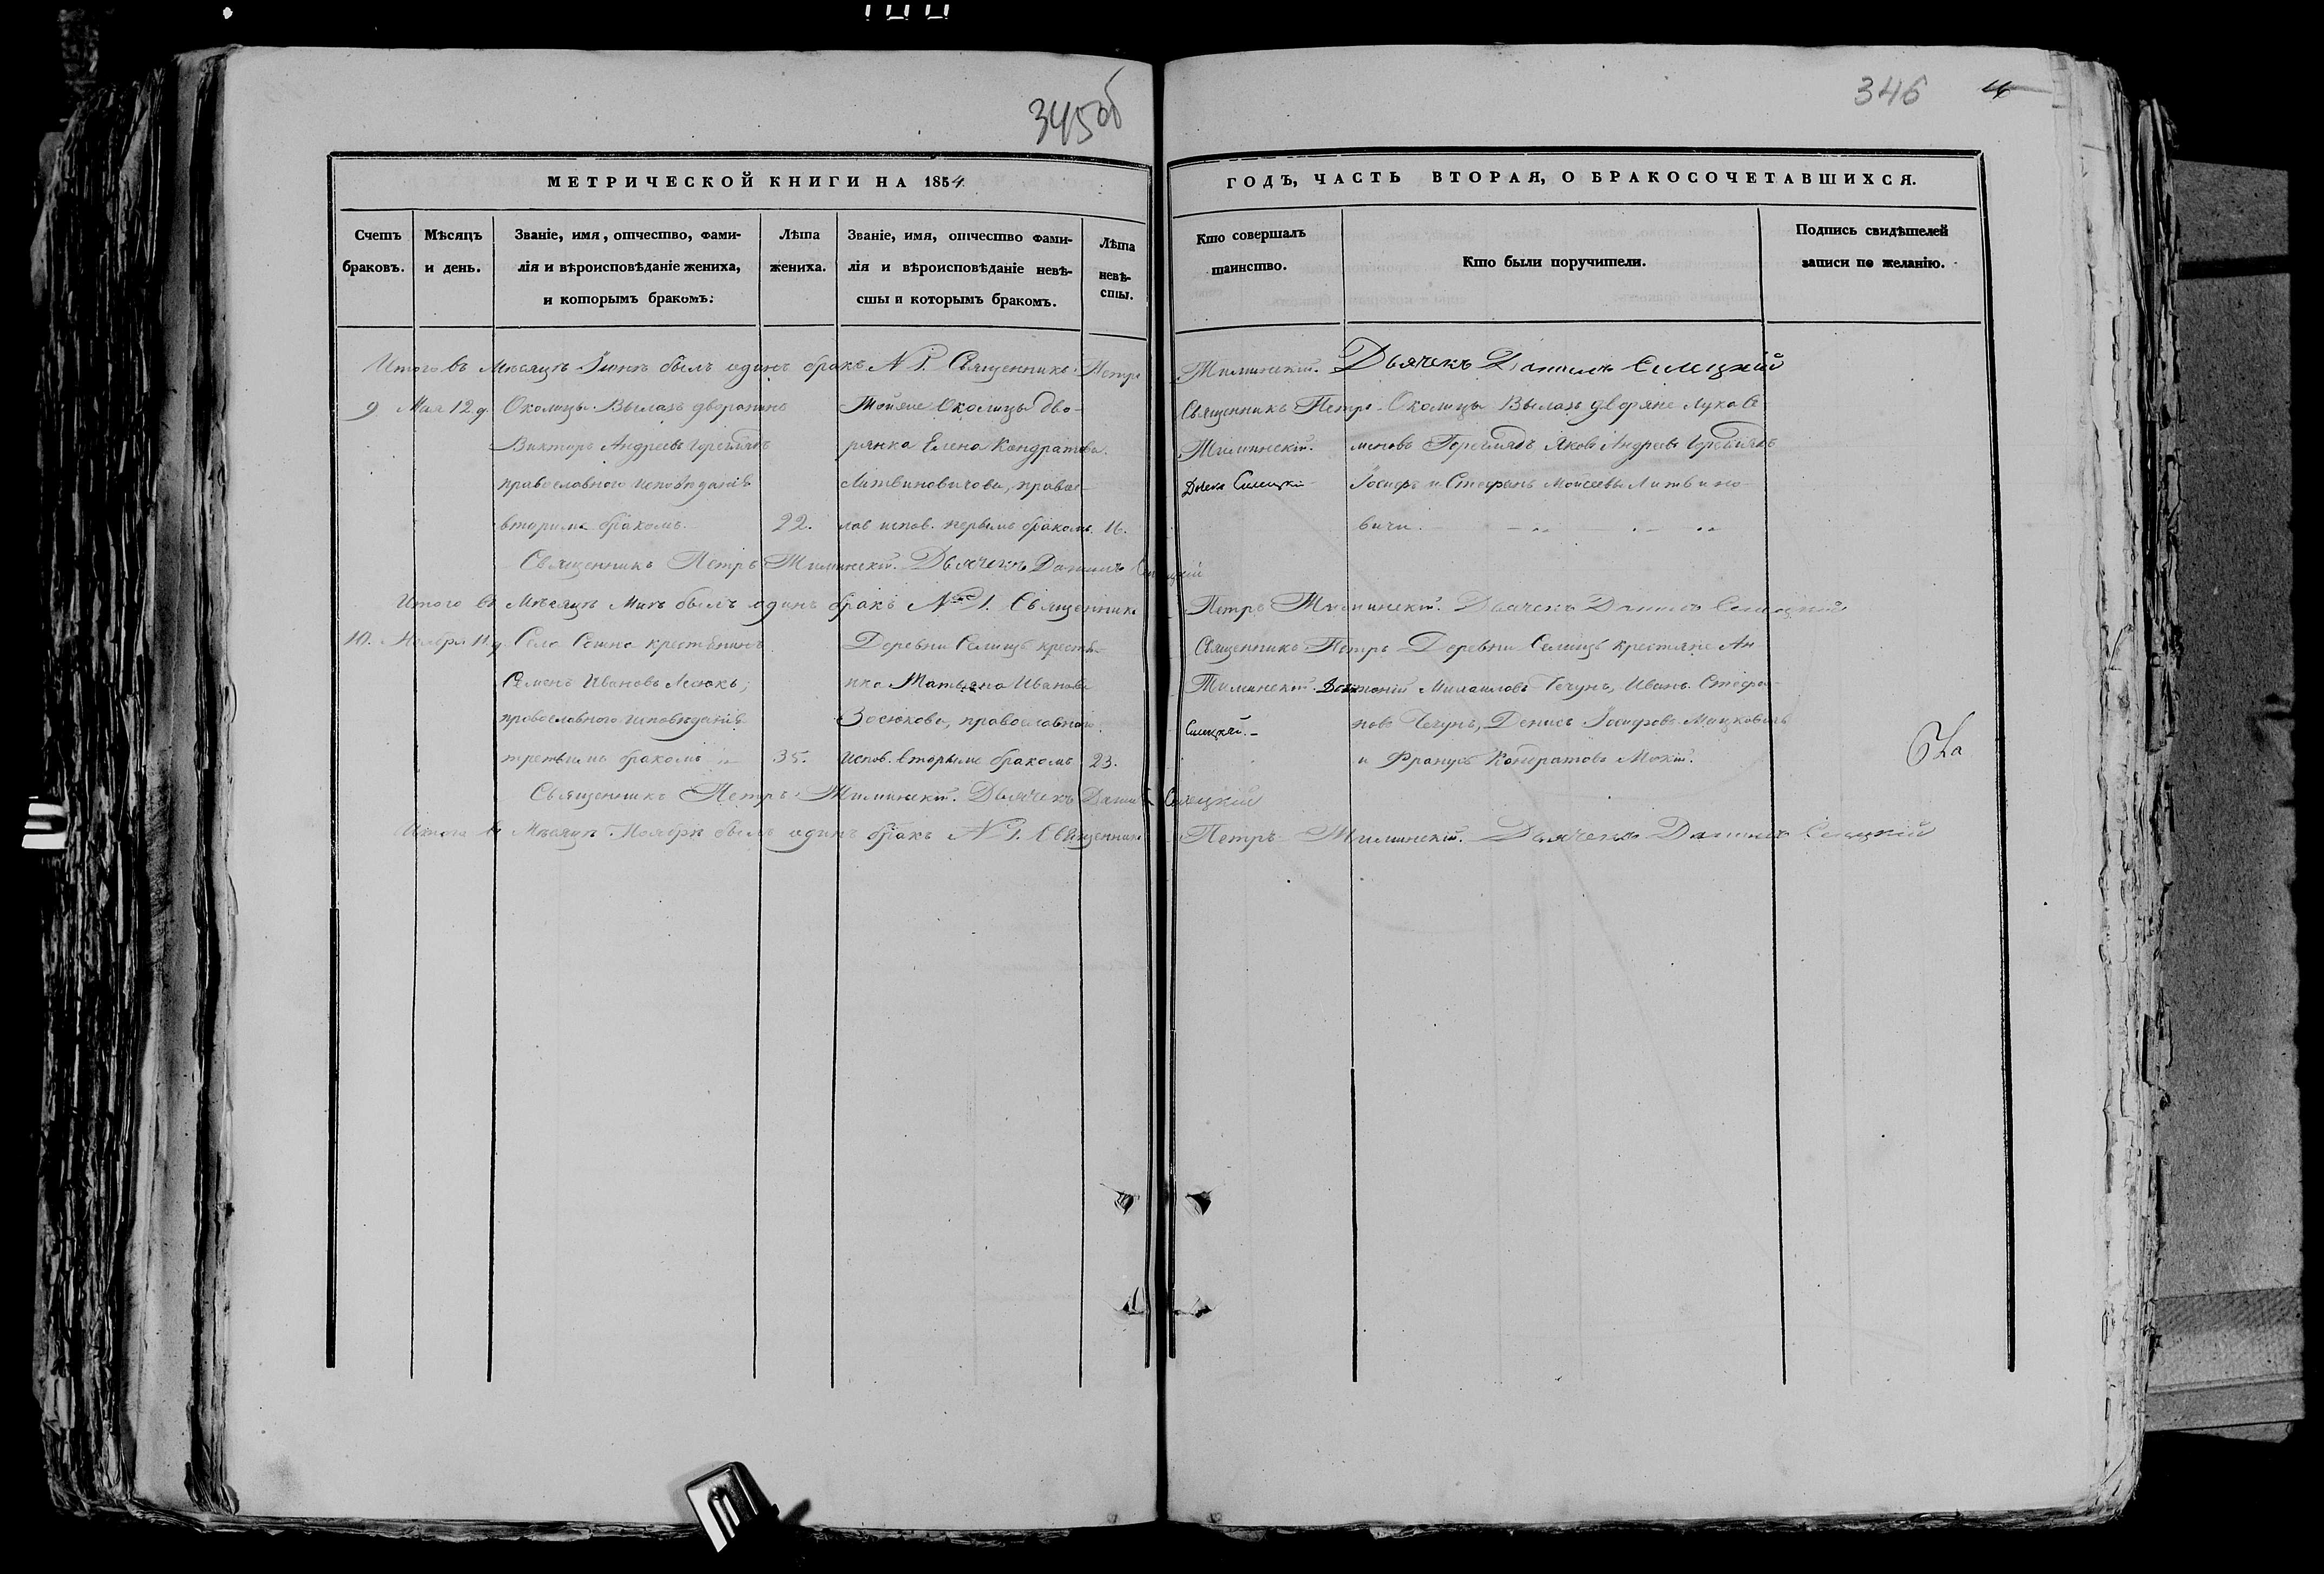 345об
346
МЕТРИЧЕСКОЙ КНИГИ НА 1854
Счетъ браковъ.
Мѣсяцъ и день.
Званіе, имя, отчество, фами-
лія и вѣроисповѣданіе жениха,
и которымъ бракомъ.
Лѣта жениха.
Званіе, имя, отчество фами-
лія и вѣроисповѣданіе невѣ-
сты и которымъ бракомъ.
Лѣта невѣ-
сты.
ГОДЪ, ЧАСТЬ ВТОРАЯ, О БРАКОСОЧЕТАВШИХСЯ.
Кто совершалъ
таинство.
Кто были поручители.
Подпись свидѣтелей
записи по желанію.
Итого въ Мѣсяцѣ былъ одинъ бракъ N 1. Священникъ Петръ
Дьячекъ Даніилъ Силецкій
9 Мая 12 д. Околицы Вылазъ дворянинъ
Викторъ Андреевъ
православнаго исповѣданія
вторымъ бракомъ. 22.
Тойже Околицы дво-
рянка Елена Кондратова
Литвиновичова, право-
слав испов. первымъ бракомъ. 16.
Священникъ Петръ
Дьячекъ Силецкій
Околицы Вылазъ дворяне Лука Се-
меновъ Яковъ Андреевъ
Іосифъ и Стефанъ Моисеевы Литвино-
вичи.
Священникъ Петръ Дьячекъ Даніилъ Силецкій
Итого въ Мѣсяцѣ Маѣ былъ одинъ бракъ N 1. Священникъ
Петръ Дьячекъ Даніилъ Силецкій
10. Ноября 11 д. Села крестьянинъ
Семенъ Ивановъ
православнаго исповѣданія
третьимъ бракомъ 35.
Деревни Селищъ кресть-
нка Татьяна Иванова
Зосюкова, православнаго
испов. вторымъ бракомъ 23.
Священникъ Петръ
Силецкій.
Деревни Селищъ крестяне Ан-
тоній Михаиловъ Чечунъ, Иванъ Стефа-
новъ Чечунъ, Денисъ Іосифовъ Мацкевичъ
и Францъ Кондратовъ
Священникъ Петръ Дьячекъ Даніилъ Силецкій
Итого въ Мѣсяцѣ Ноябрѣ былъ одинъ бракъ N 1. Священникъ
Петръ Дьячекъ Даніилъ Силецкій